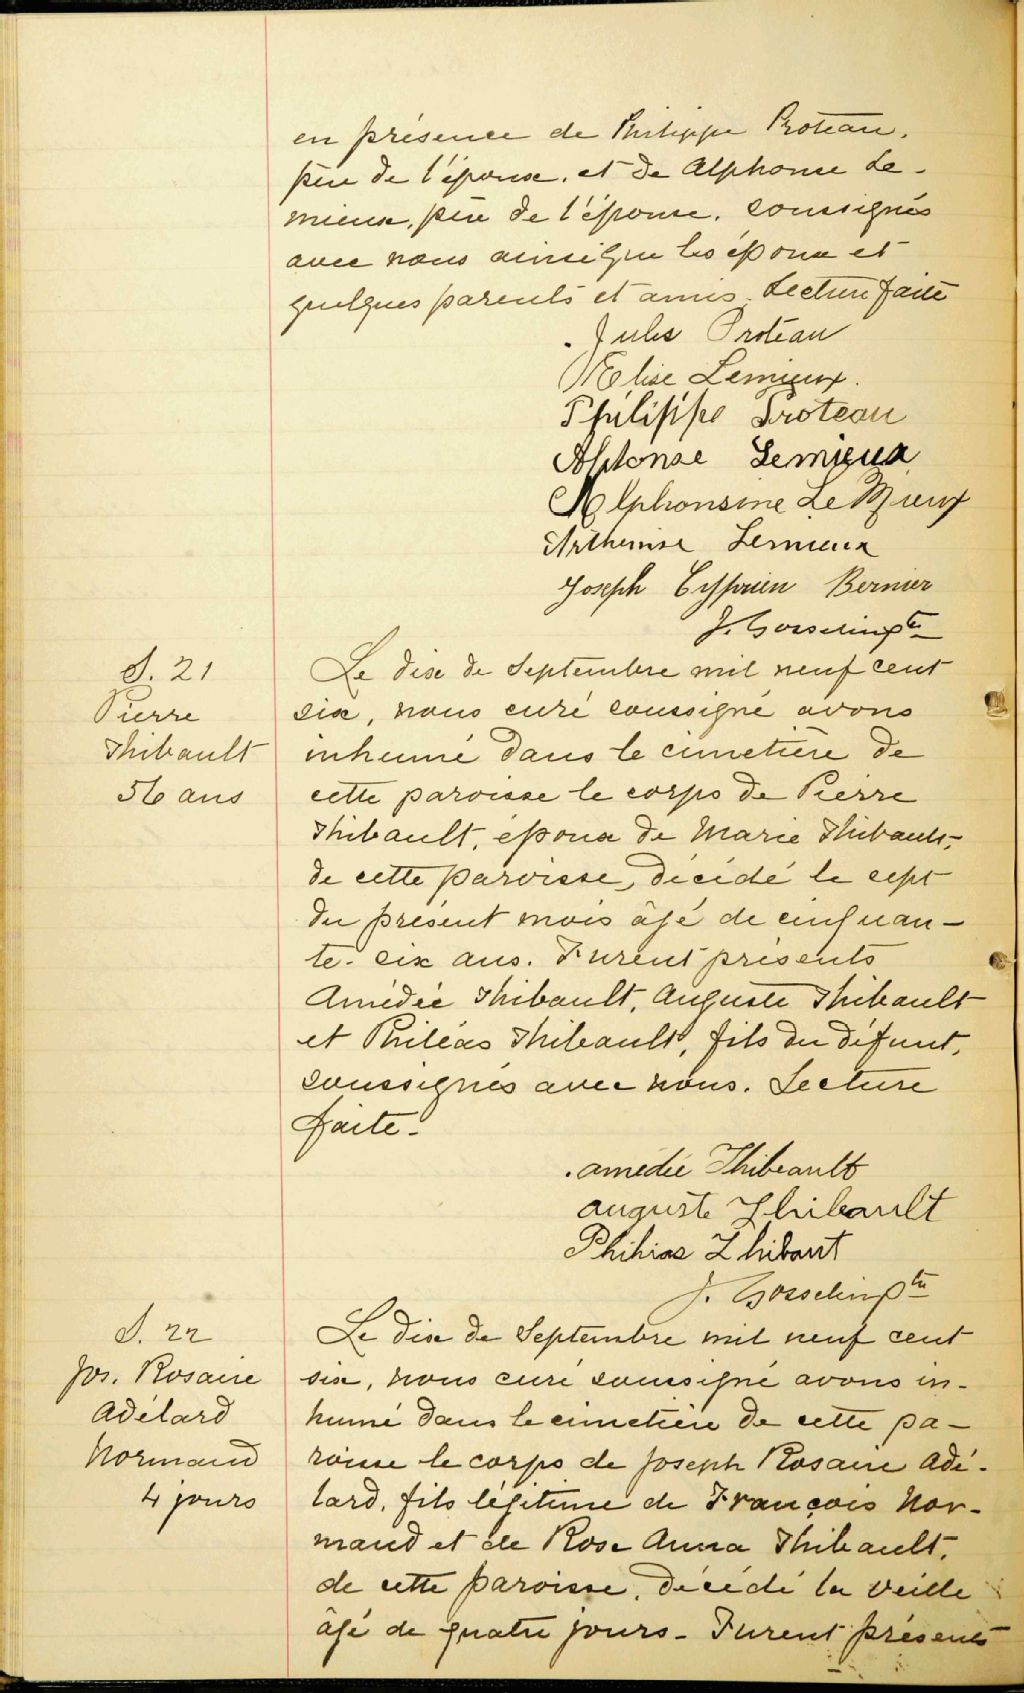 en présence de Philippe Proteau,
père de l'époux, et de Alphonse Le-
mieux, père de l'épouse, soussignés
avec nous ainsi que les époux et
quelques parents et amis. Lecture faite
Jules Proteau
Elise Lemieux.
Philippe Proteau
Alphonse Lemieux
Alphonsine Le Mieux
Arthemise Lemieux
Joseph Cyprien Bernier
J. Gosselin ptre
S. 21
Pierre
Thibault
56 ans
Le dix de Septembre mil neuf cent
six, nous curé soussigné avons
inhumé dans le cimetière de
cette paroisse le corps de Pierre
Thibault, époux de Marie Thibault,
de cette paroisse, décédé le sept
du présent mois âgé de cinquan-
te-six ans. Furent présents
Amédée Thibault, Auguste Thibault
et Philéas Thibault, fils du défunt,
soussignés avec nous. Lecture
faite-
amédée Thibeault
auguste Thibault
Philias Thibaut
J. Gosselin ptre
S. 22
Jos. Rosaire
Adélard
Normand
4 jours
Le dix de Septembre mil neuf cent
six, nous curé soussigné avons in-
humé dans le cimetière de cette pa-
roisse le corps de Joseph Rosaire Adé-
lard, fils légitime de François Nor-
mand et de Rose Anna Thibault,
de cette paroisse, décédé la veille
âgé de quatre jours- Furent présents